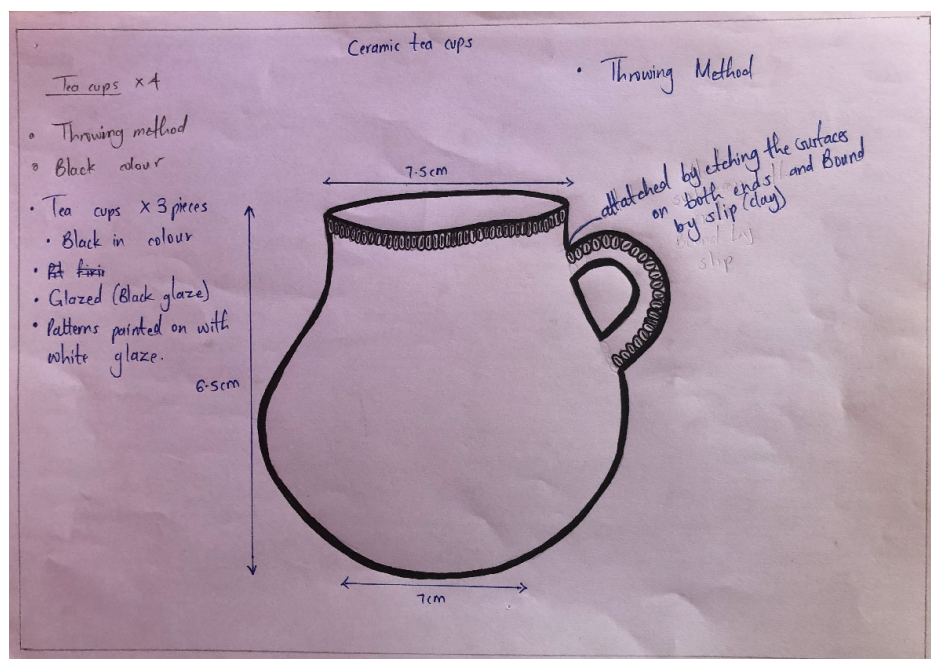 Ceramic tea cups
Tea cups x 4
• Throwing method
• Black colour
• Tea cups x 3 pieces
• Black in colour
•
• Glazed (Black glaze)
• Patterns painted on with
white glaze.
• Throwing Method
attatched by etching the surfaces
on both ends and Bound
by slip (clay)
slip
7.5cm
6.5cm
7cm